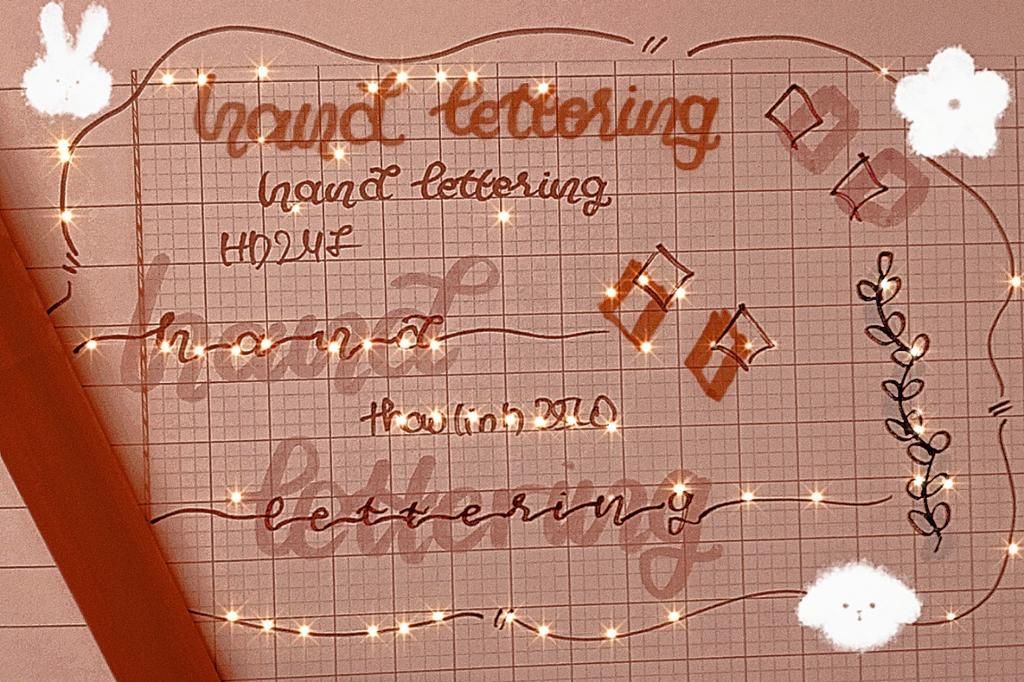 hand lettering
hand lettering
HD247
hand
hand
lettering
lettering